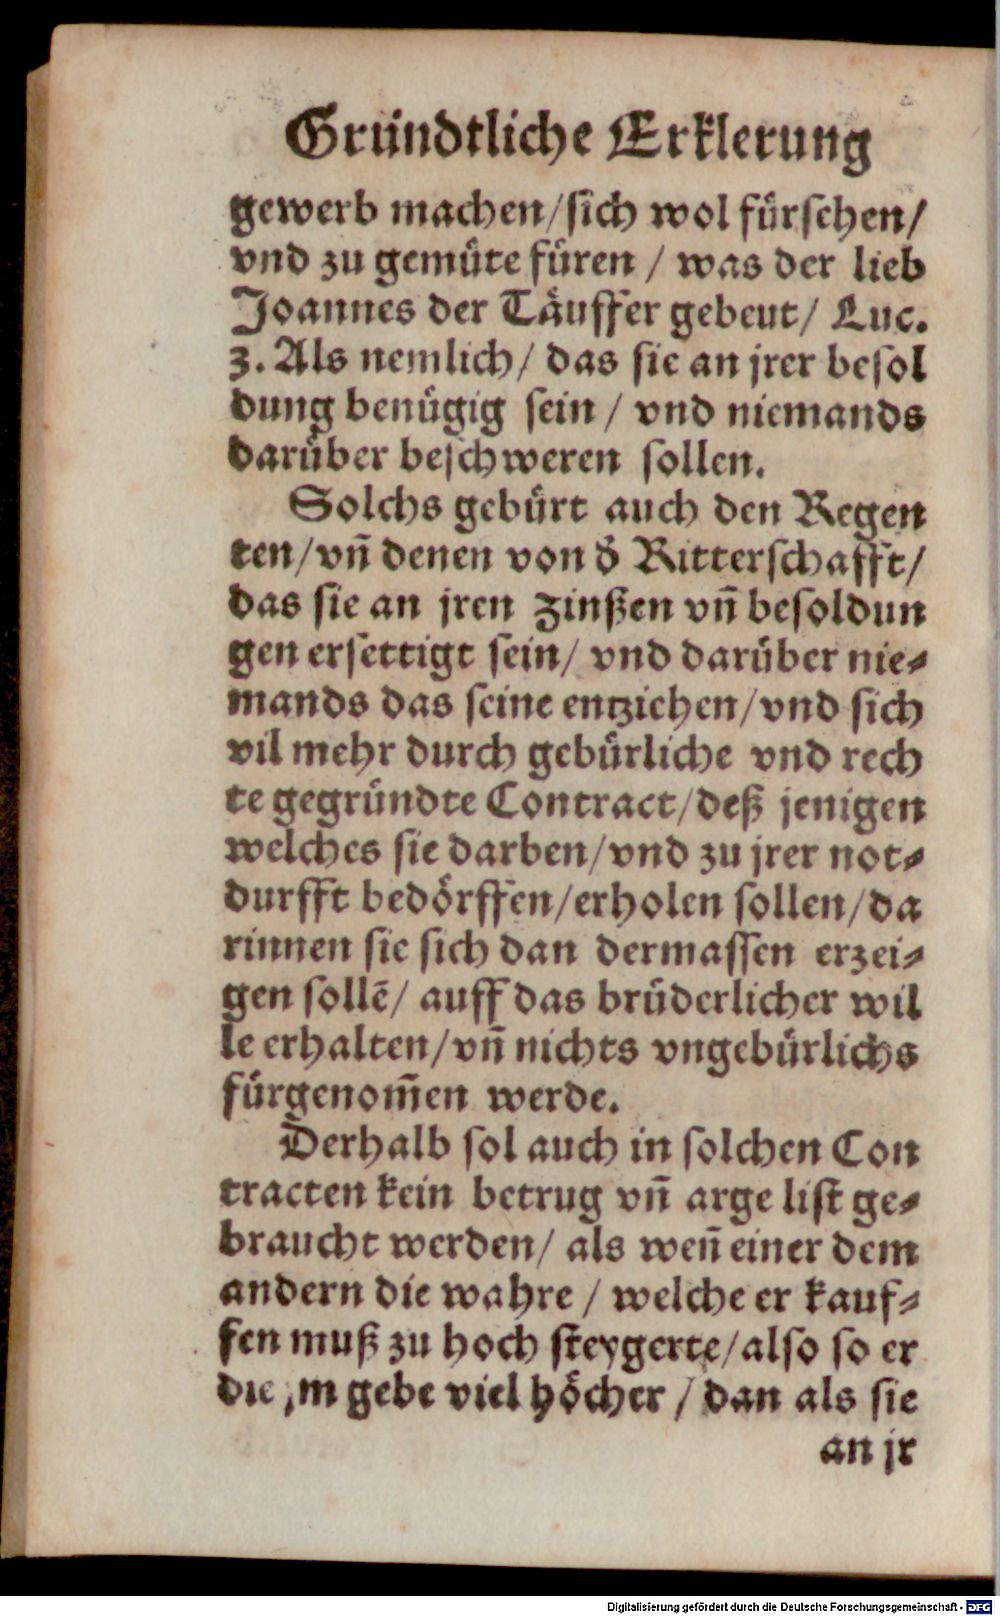 Gründtliche Erklerung
gewerb machen/sich wol fürsehen/
vnd zu gemüte füren / was der lieb
Joannes der Täuffer gebeut/ Luc.
3. Als nemlich/ das sie an jrer besol
dung benügig sein / vnd niemands
darüber beschweren sollen.
Solchs gebürt auch den Regen
ten/vñ denen von d̓ Ritterschafft/
das sie an jren zinßen vñ besoldun
gen ersettigt sein/ vnd darüber nie⸗
mands das seine entziehen/vnd sich
vil mehr durch gebürliche vnd rech
te gegründte Contract/deß jenigen
welches sie darben/vnd zu jrer not⸗
durfft bedörffen/erholen sollen/da
rinnen sie sich dan dermassen erzei⸗
gen sollẽ/ auff das brüderlicher wil
le erhalten/vñ nichts vngebürlichs
fürgenom̃en werde.
Derhalb sol auch in solchen Con
tracten kein betrug vñ arge list ge⸗
braucht werden/ als weñ einer dem
andern die wahre / welche er kauf⸗
fen muß zu hoch steygerte/also so er
die jm gebe viel höcher / dan als sie
an jr
Digitalisierung gefördert durch die Deutsche Forschungsgemeinschaft - DFG